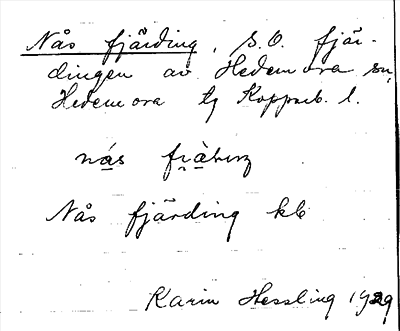 Nås fjärding, S.O. fjär-
dingen av Hedemora sn,
Hedemora tg Kopparb. l.
nås
Nås fjärding kb
Karin Hessling 1929